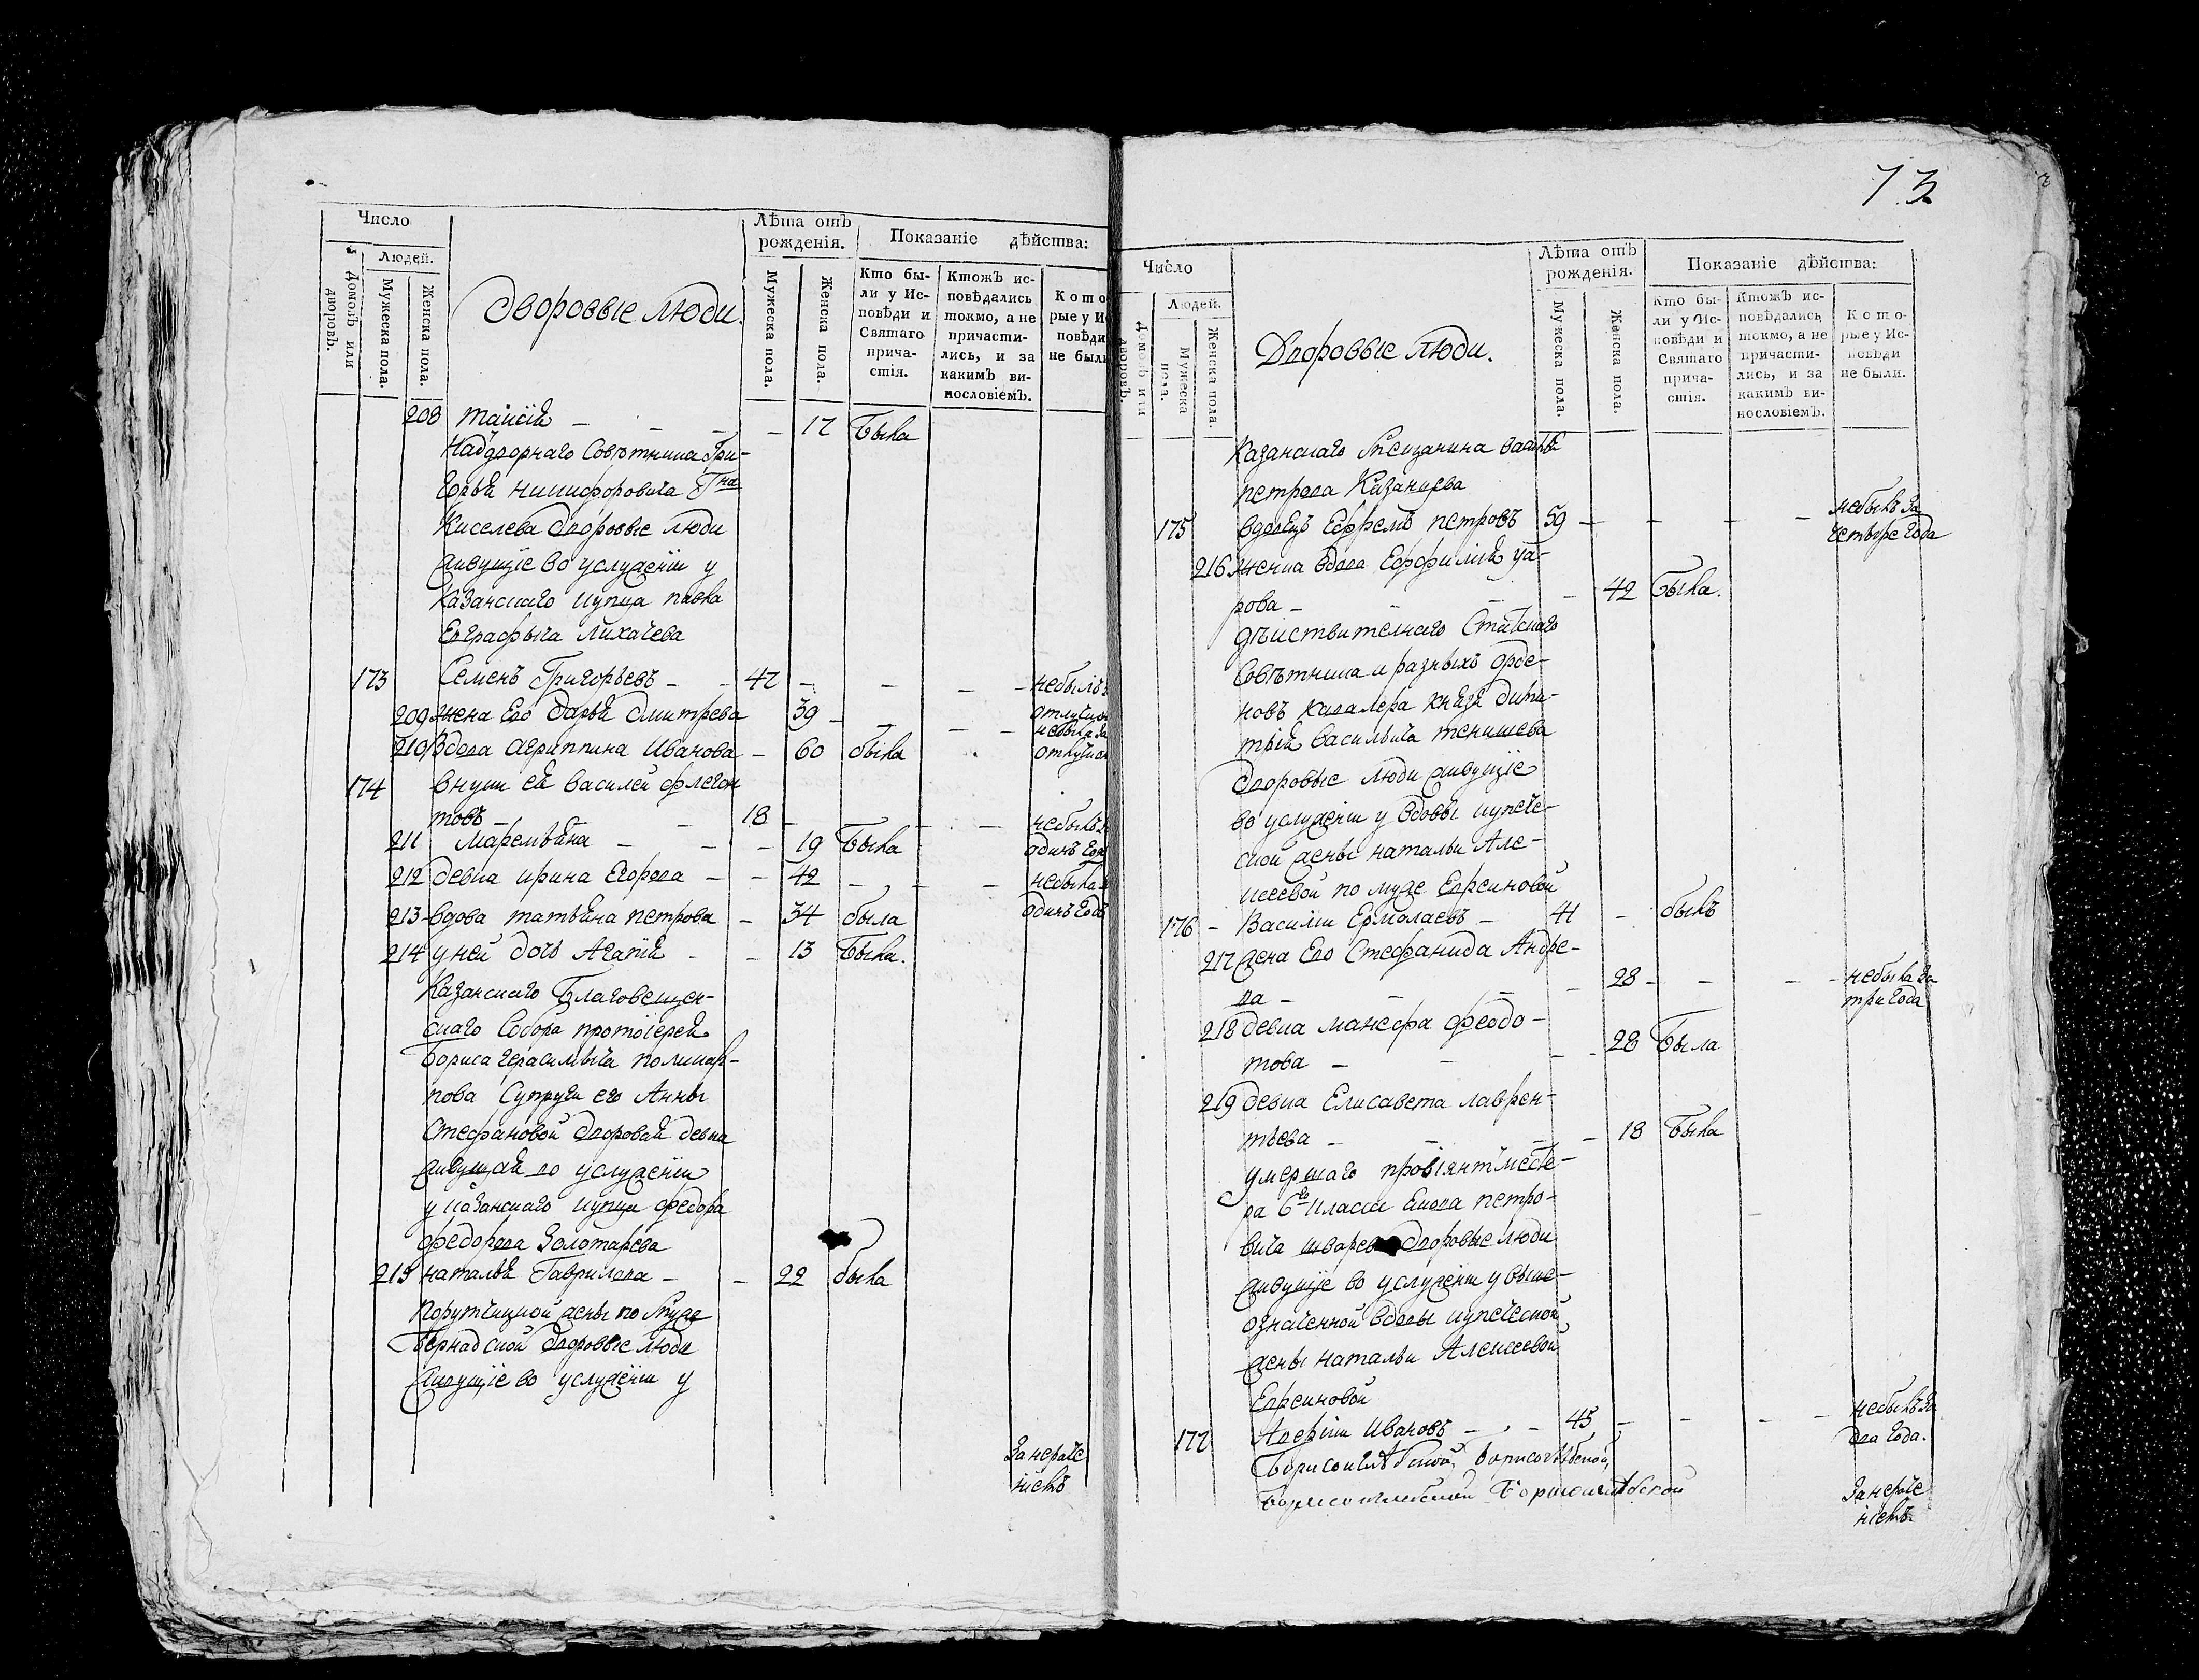 Число
Людей.
Домовъ или дворовъ.
Мужеска пола.
Женска пола.
Дворовые люди.
Лѣта отъ рожденія.
Мужеска пола.
Женска пола.
Показаніе дѣйства:
Кто бы-
ли у Ис-
повѣди и
Святаго
прича-
стія.
Ктожъ ис-
повѣдались
токмо, а не
причасти-
лись, и за
какимъ ви-
нословіемъ.
Кото
рые у Ис
повѣди
не были
208 Таисія - - - - 17 Была
Надворнаго Советника Гри-
горья Никифоровича Гна
Киселева дворовые люди
живущіе во услуженіи у
Казанскаго купца павла
Евграфыча Лихачева
173 Семенъ Григорьевъ - - 47 - - - - небылъ
209 жена Его Дарья Дмитрева 39 - - отлучкою
- - небыла за
210 Вдова агриппина Иванова - 60 была отлучкою
174 внукъ ея василей флегон
товъ - - - 18 - - - - небылъ
211 Маремьяна - - - 19 Была одинъ Годъ
212 девка ирина Егорова - - 42 - - - небыла
213 вдова татьяна петрова - 34 была одинъ Годъ
214 у ней дочь Агапія - - 13 Была.
Казанскаго Благовещен-
скаго Собора протоіерея
Бориса Герасимыча поликар-
пова Супруги его Анны
Стефановой дворовая девка
живущая во услуженіи
у казанскаго купца федора
федорова Золотарева
215 наталья Гаврилова - - 22 была
Порутчицкой жены по Муже
Бернадской дворовые люди
Живущіе во услуженіи у
За нераче
ніемъ
73.
Число
Людей.
Домовъ или дворовъ.
Мужеска пола.
Женска пола.
Дворовые люди.
Лѣта отъ рожденія.
Мужеска пола.
Женска пола.
Показаніе дѣйства:
Кто бы-
ли у Ис-
повѣди и
Святаго
прича-
стія.
Ктожъ ис-
повѣдались
токмо, а не
причасти-
лись, и за
какимъ ви-
нословіемъ.
Кото-
рые у Ис-
повѣди
не были.
Казанскаго Мещанина василья
петрова Казанцева
175 вдовецъ Ефремъ петровъ 59 - - - - небылъ за
четыре года
216 женка вдова Ефросимія
рова - - - 42 Была.
дѣйствителнаго Статскаго
Совѣтника и разныхъ орде-
новъ кавалера князя дими-
трія васильича тенишева
дворовые люди живущіе
во услуженіи у вдовы купече-
ской жены натальи Але-
ксеевой по муже Евреиновой
176 - Василіи Ермолаевъ - 41 - былъ
217 жена Его Стефанида Андре-
ва - - - - 28 - - - - небыла за
три года
218 девка манефа феодо-
това - - - - 28 Была
219 девка Елисавета лаврен-
тьева - - - - 18 Была
умершаго провіянтмейсте-
ра 6го класса петро-
вича дворовые люди
живущіе во услуженіи у выше-
означенной вдовы купеческой
жены натальи Алексеевой
Евреиновой
177 Аверкіи Ивановъ - - 45 - - - - небылъ за
два года.
Борисоглѣбской, борисоглѣбской,
борисоглебской Борисоглѣбской
За нераче
ніемъ